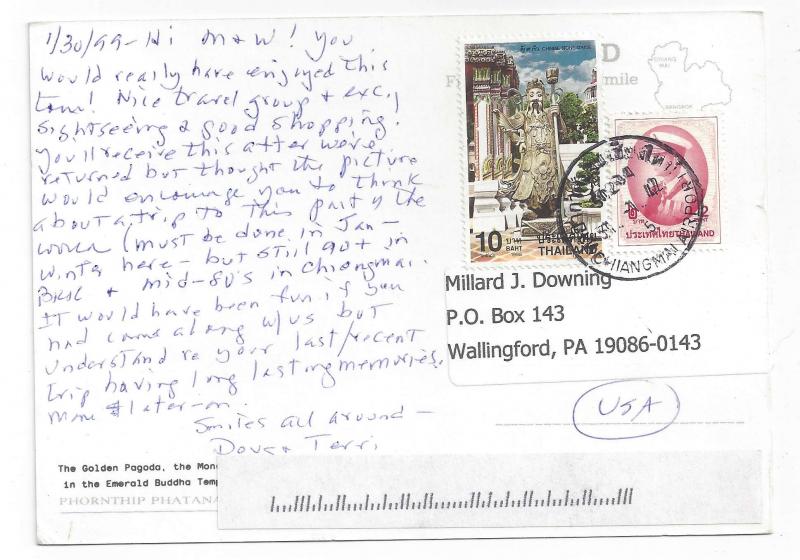 1/30/99 - Hi M & W! You
would really have enjoyed this
tour! Nice travel group & exc.
sightseeing & good shopping.
You'll receive this after we're
returned but thought the picture
would encourage you to think
about a trip to this part of the
world (must be done in Jan-
winter here - but still 90+ in
& mid-80's in Chiangmai.
It would have been fun if you
had come along w/us but
understand re your last/recent
trip having long lasting memories.
More later-on.
Smiles all around -
Doug & Terri
The Golden Pagoda, the Mon
in the Emerald Buddha Temp
PHORNTHIP PHATANA
D
mile
CHIANG
MAI
BANGKOK
10 บาท
BAHT
ประเทศไทย
THAILAND
2
ประเทศไทย THAILAND
CHIANGMAI AIRPORT
Millard J. Downing
P.O. Box 143
Wallingford, PA 19086-0143
USA